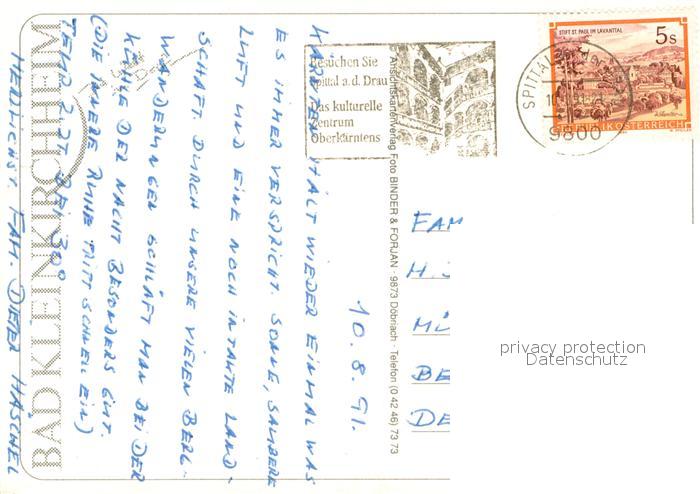 10.8.91.
KÄRNTEN HÄLT WIEDER EINMAL WAS
ES IMMER VERSPRICHT. SONNE, SAUBERE
LUFT UND EINE NOCH INTAKTE LAND-
SCHAFT. DURCH UNSERE VIELEN BERG-
WANDERUNGEN SCHLÄFT MAN BEI DER
KÜHLE DER NACHT BESONDERS GUT.
(DIE INNERE RUHE TRITT SCHNELL EIN)
TEMP. 2. ZT. BEI 30°
HERZLICHST. FAM. DIETER HÄSCHEL
BAD KLEINKIRCHHEIM
Ansichtskartenverlag Foto BINDER & FORJAN · 9873 Döbriach · Telefon (0 42 46) 73 73
Besuchen Sie
Spittal a.d. Drau
Das kulturelle
Zentrum
Oberkärntens
SPITTAL
9800
STIFT ST. PAUL IM LAVANTTAL
5s
REPUBLIK ÖSTERREICH
FAM
H.
MÜ
BE
DE
privacy protection
Datenschutz